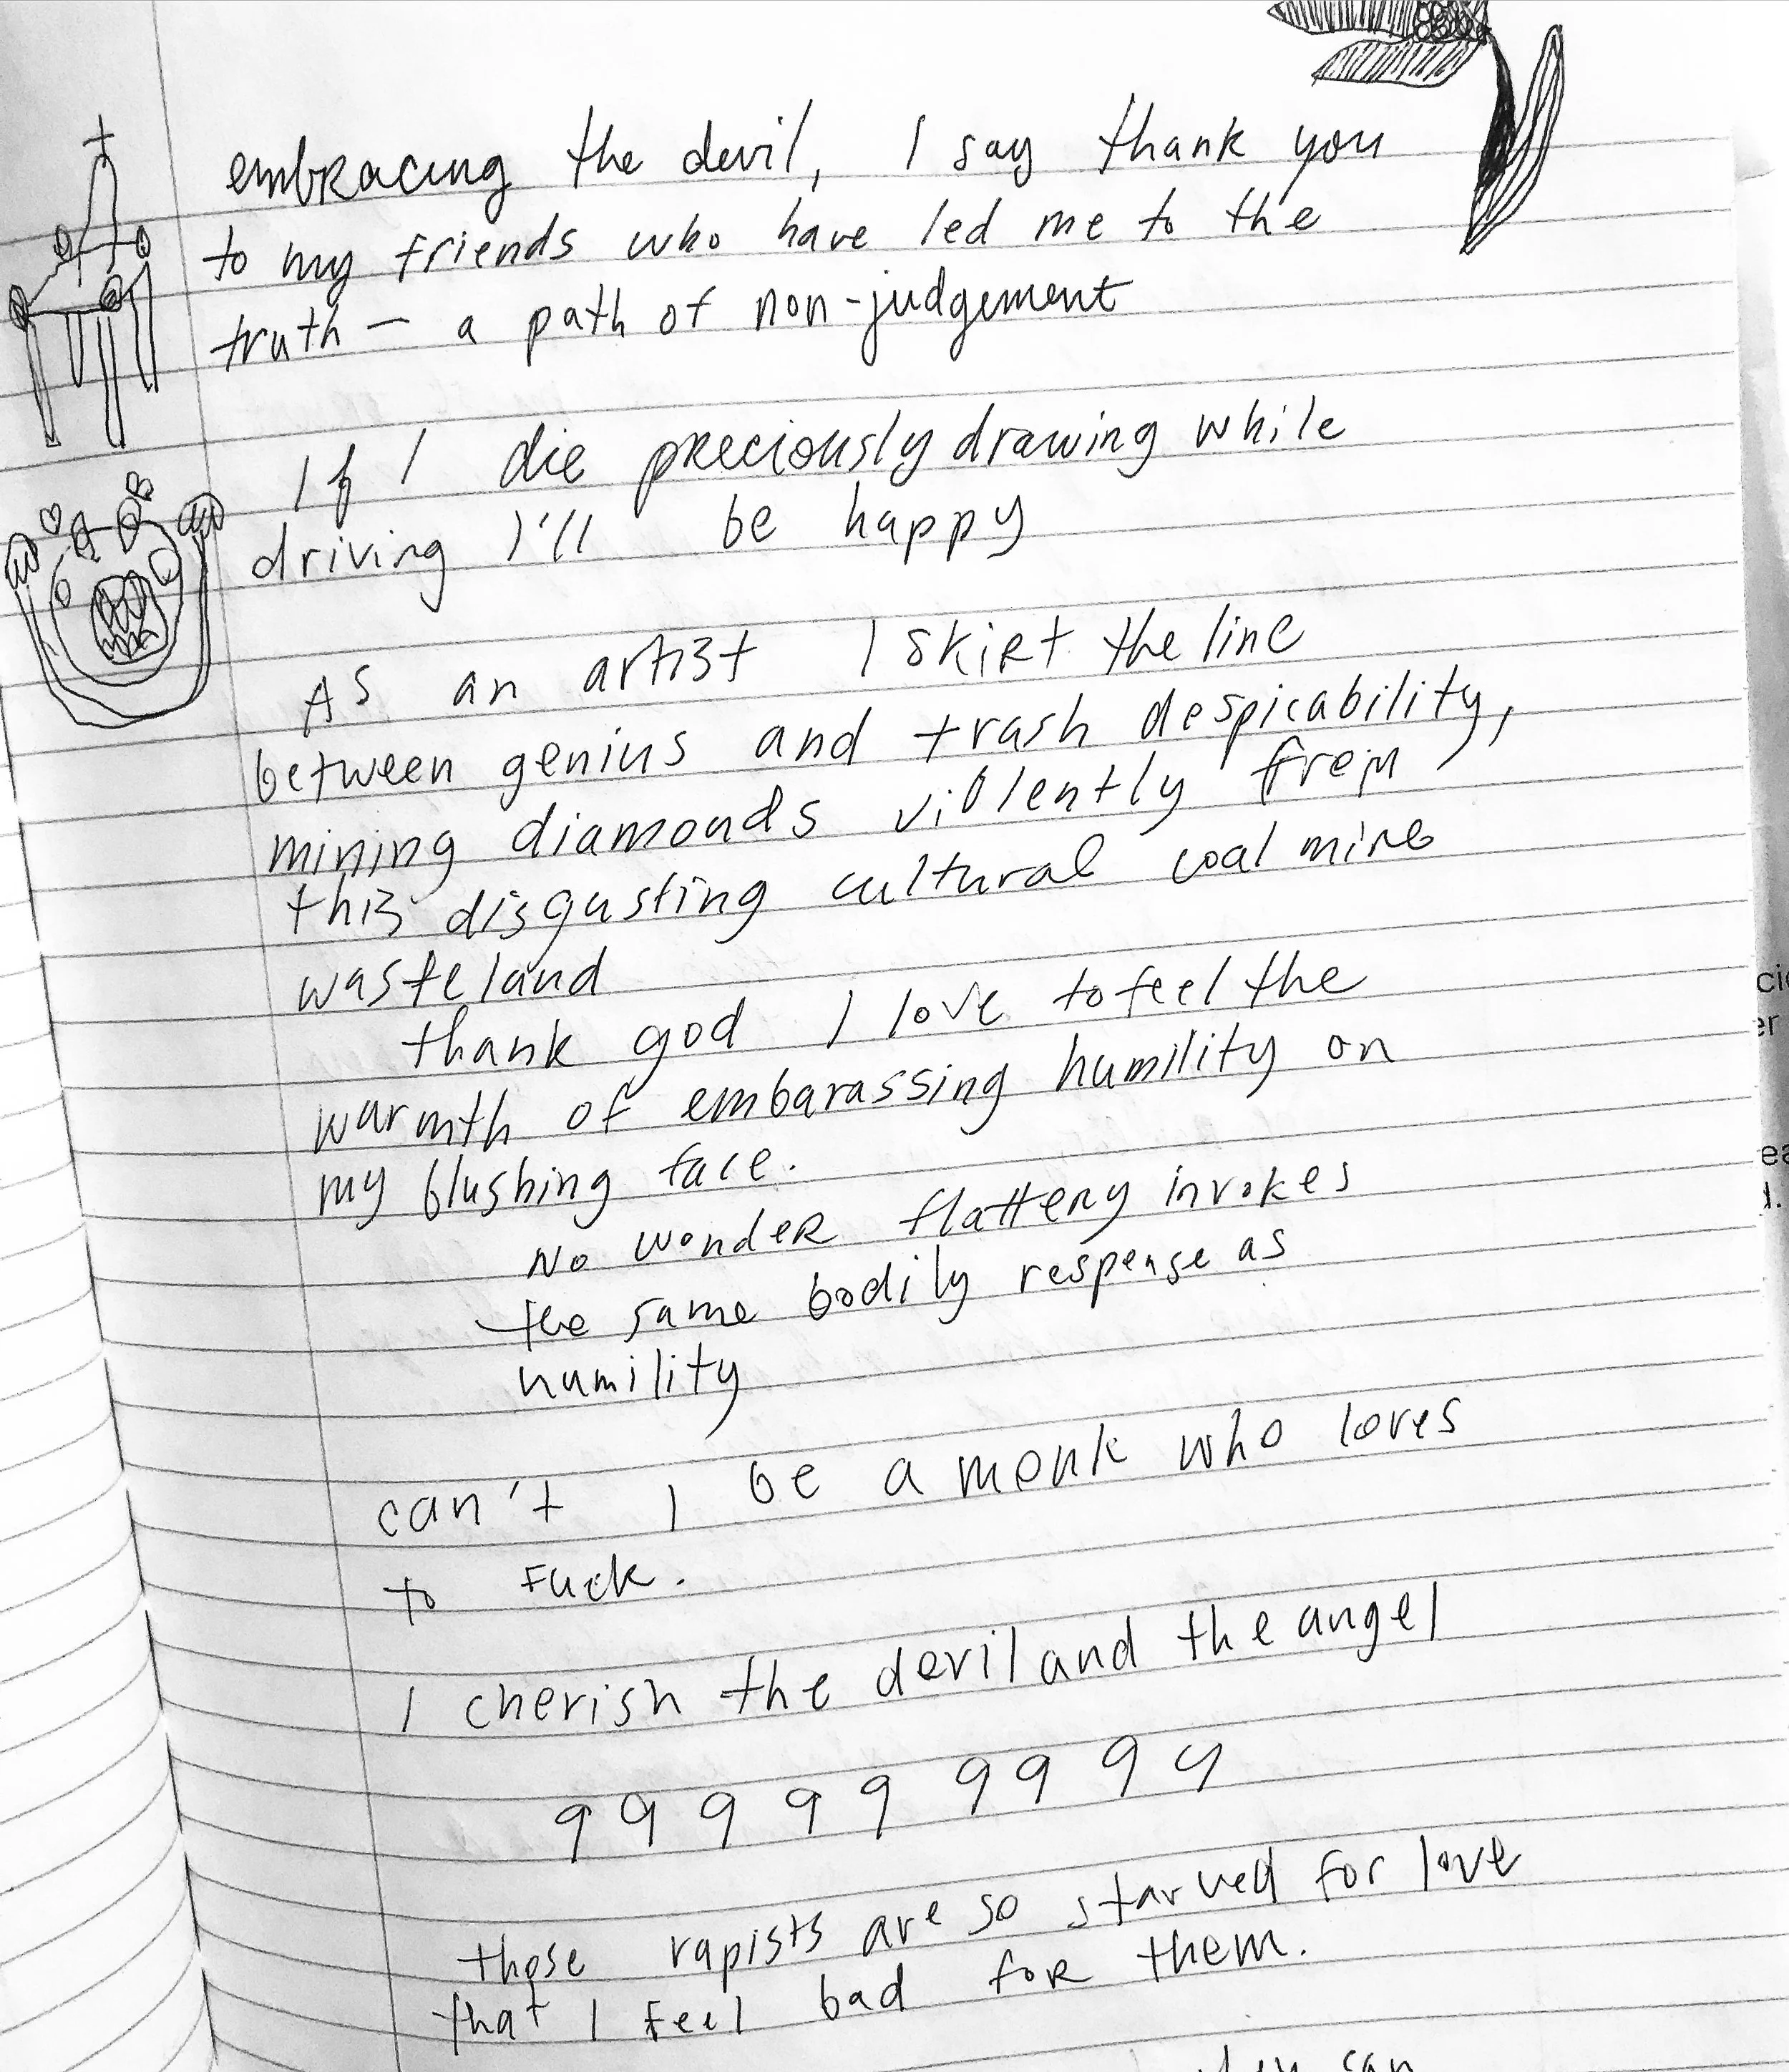 embracing the devil, I say thank you
to my friends who have led me to the
truth — a path of non-judgement
If I die preciously drawing while
driving I'll be happy
As an artist I skirt the line
between genius and trash despicability,
mining diamonds violently from
this disgusting cultural coal mine
wasteland
thank god I love to feel the
warmth of embarassing humility on
my blushing face.
No wonder flattery invokes
the same bodily response as
humility
can't I be a monk who loves
to fuck.
I cherish the devil and the angel
9 9 9 9 9 9 9 9 9
those rapists are so starved for love
that I feel bad for them.
can